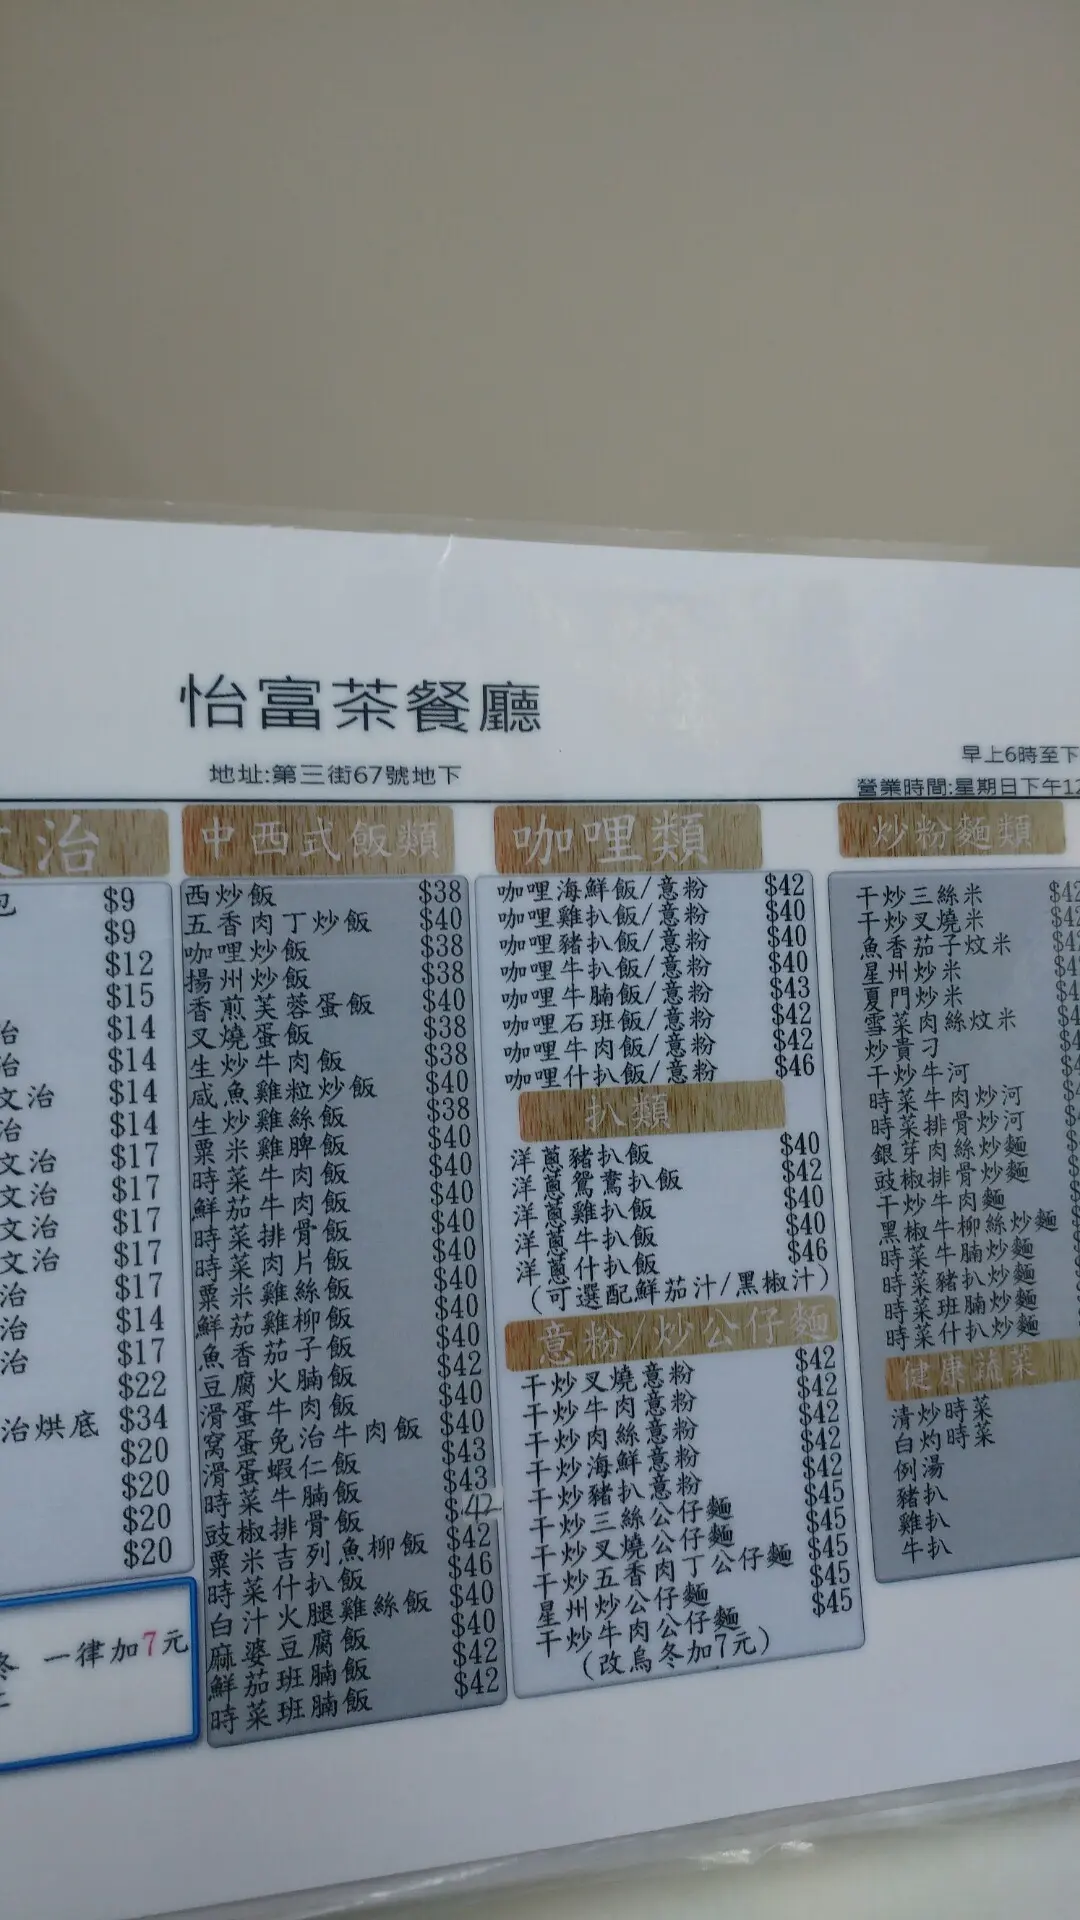 怡富茶餐廳
地址:第三街67號地下
早上6時至下
營業時間:星期日下午12
治
$9
$9
$12
$15
治 $14
治 $14
文治 $14
治 $14
文治 $17
文治 $17
文治 $17
文治 $17
治 $17
治 $14
治 $17
$22
治烘底 $34
$20
$20
$20
$20
一律加7元
中西式飯類
西炒飯 $38
五香肉丁炒飯 $40
咖哩炒飯 $38
揚州炒飯 $38
香煎芙蓉蛋飯 $40
叉燒蛋飯 $38
生炒牛肉飯 $38
咸魚雞粒炒飯 $40
生炒雞絲飯 $38
粟米雞脾飯 $40
時菜牛肉飯 $40
鮮茄牛肉飯 $40
時菜排骨飯 $40
時菜肉片飯 $40
粟米雞絲飯 $40
鮮茄雞柳飯 $40
魚香茄子飯 $40
豆腐火腩飯 $42
滑蛋牛肉飯 $40
窩蛋免治牛肉飯 $40
滑蛋蝦仁飯 $43
時菜牛腩飯 $43
豉椒排骨飯 $42
粟米吉列魚柳飯 $42
時菜什扒飯 $46
白汁火腿雞絲飯 $40
麻婆豆腐飯 $40
鮮茄班腩飯 $42
時菜班腩飯 $42
咖哩類
咖哩海鮮飯/意粉 $42
咖哩雞扒飯/意粉 $40
咖哩豬扒飯/意粉 $40
咖哩牛扒飯/意粉 $40
咖哩牛腩飯/意粉 $43
咖哩石班飯/意粉 $42
咖哩牛肉飯/意粉 $42
咖哩什扒飯/意粉 $46
扒類
洋蔥豬扒飯 $40
洋蔥鴛鴦扒飯 $42
洋蔥雞扒飯 $40
洋蔥牛扒飯 $40
洋蔥什扒飯 $46
(可選配鮮茄汁/黑椒汁)
意粉/炒公仔麵
干炒叉燒意粉 $42
干炒牛肉意粉 $42
干炒肉絲意粉 $42
干炒海鮮意粉 $42
干炒豬扒意粉 $42
干炒三絲公仔麵 $45
干炒叉燒公仔麵 $45
干炒五香肉丁公仔麵 $45
星州炒公仔麵 $45
干炒牛肉公仔麵 $45
(改烏冬加7元)
炒粉麵類
干炒三絲米 $42
干炒叉燒米
魚香茄子炆米
星州炒米
夏門炒米
雪菜肉絲炆米
炒貴刁
干炒牛河
時菜牛肉炒河
時菜排骨炒河
銀芽肉絲炒麵
豉椒排骨炒麵
干炒牛肉麵
黑椒牛柳絲炒麵
時菜牛腩炒麵
時菜豬扒炒麵
時菜班腩炒麵
時菜什扒炒麵
健康蔬菜
清炒時菜
白灼時菜
例湯
豬扒
雞扒
牛扒